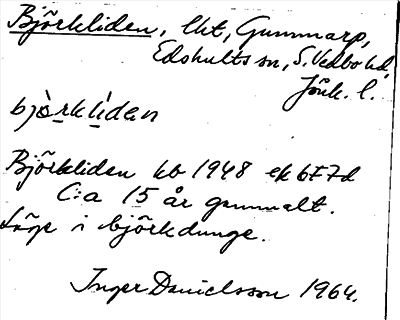 Björkliden, lht, Gummarp,
Edshults sn, S. Vedbo hd,
Jönk. l.
bjò̱rkli̱den
Björkliden kb 1948 ek 6F7d
C:a 15 år gammalt.
Läge i björkdunge.
Inger Danielsson 1964.